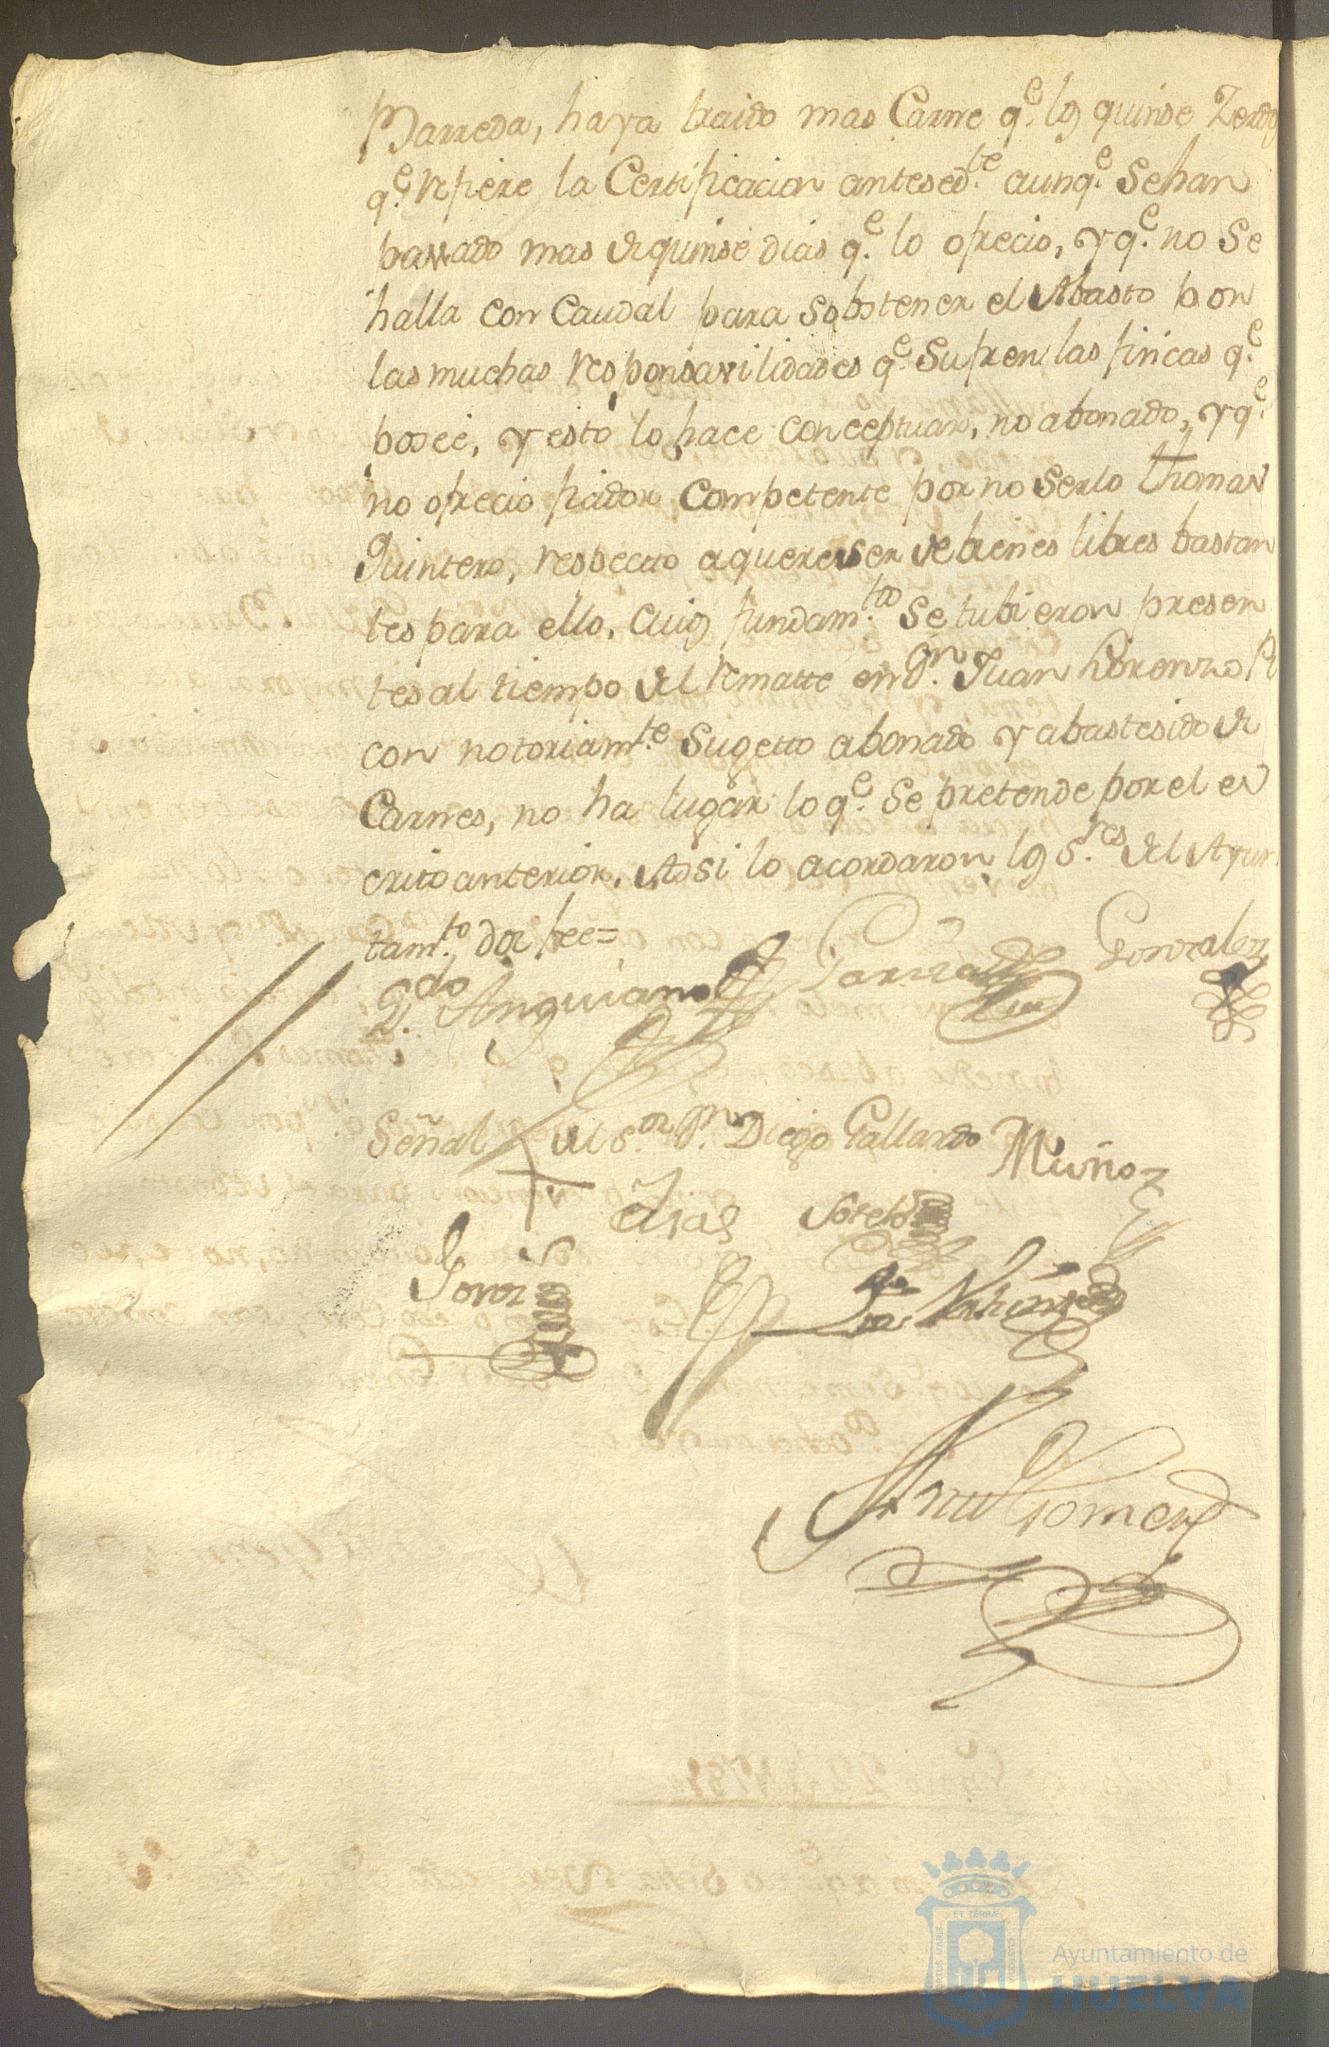 Barreda, haya traido mas Carne q.e los quinse Zerdos
q.e refiere la Certificacion antesed.te aunq.e Sehan
passado mas de quinse dias q.e lo ofrecio, y q.e no Se
halla con Caudal para sobstener el Abasto por
las muchas responsavilidades q.e Sufren las fincas q.e
posee, y esto lo hace conceptuar, no abonado, y q.e
no ofrecio fiador competente por no Serlo thomas
Quintero, respecto a querer ser de bienes libres bastan
tes para ello, cuios fundam.tos Se tubieron presen
tes al tiempo del rematte en D.n Juan Lorenzo Ri
con notoriam.te Sugetto abonado y abastesido de
Carnes, no ha lugar lo q.e Se pretende por el es
crito anterior. Asi lo acordaron los S.res del Ayun
tam.to doi fee=
Anguiano Garrido Gonzalez
Señal del S.or D.n Diego Gallardo Muñoz
Sotelo
Gomez
Ayuntamiento de
HUELVA